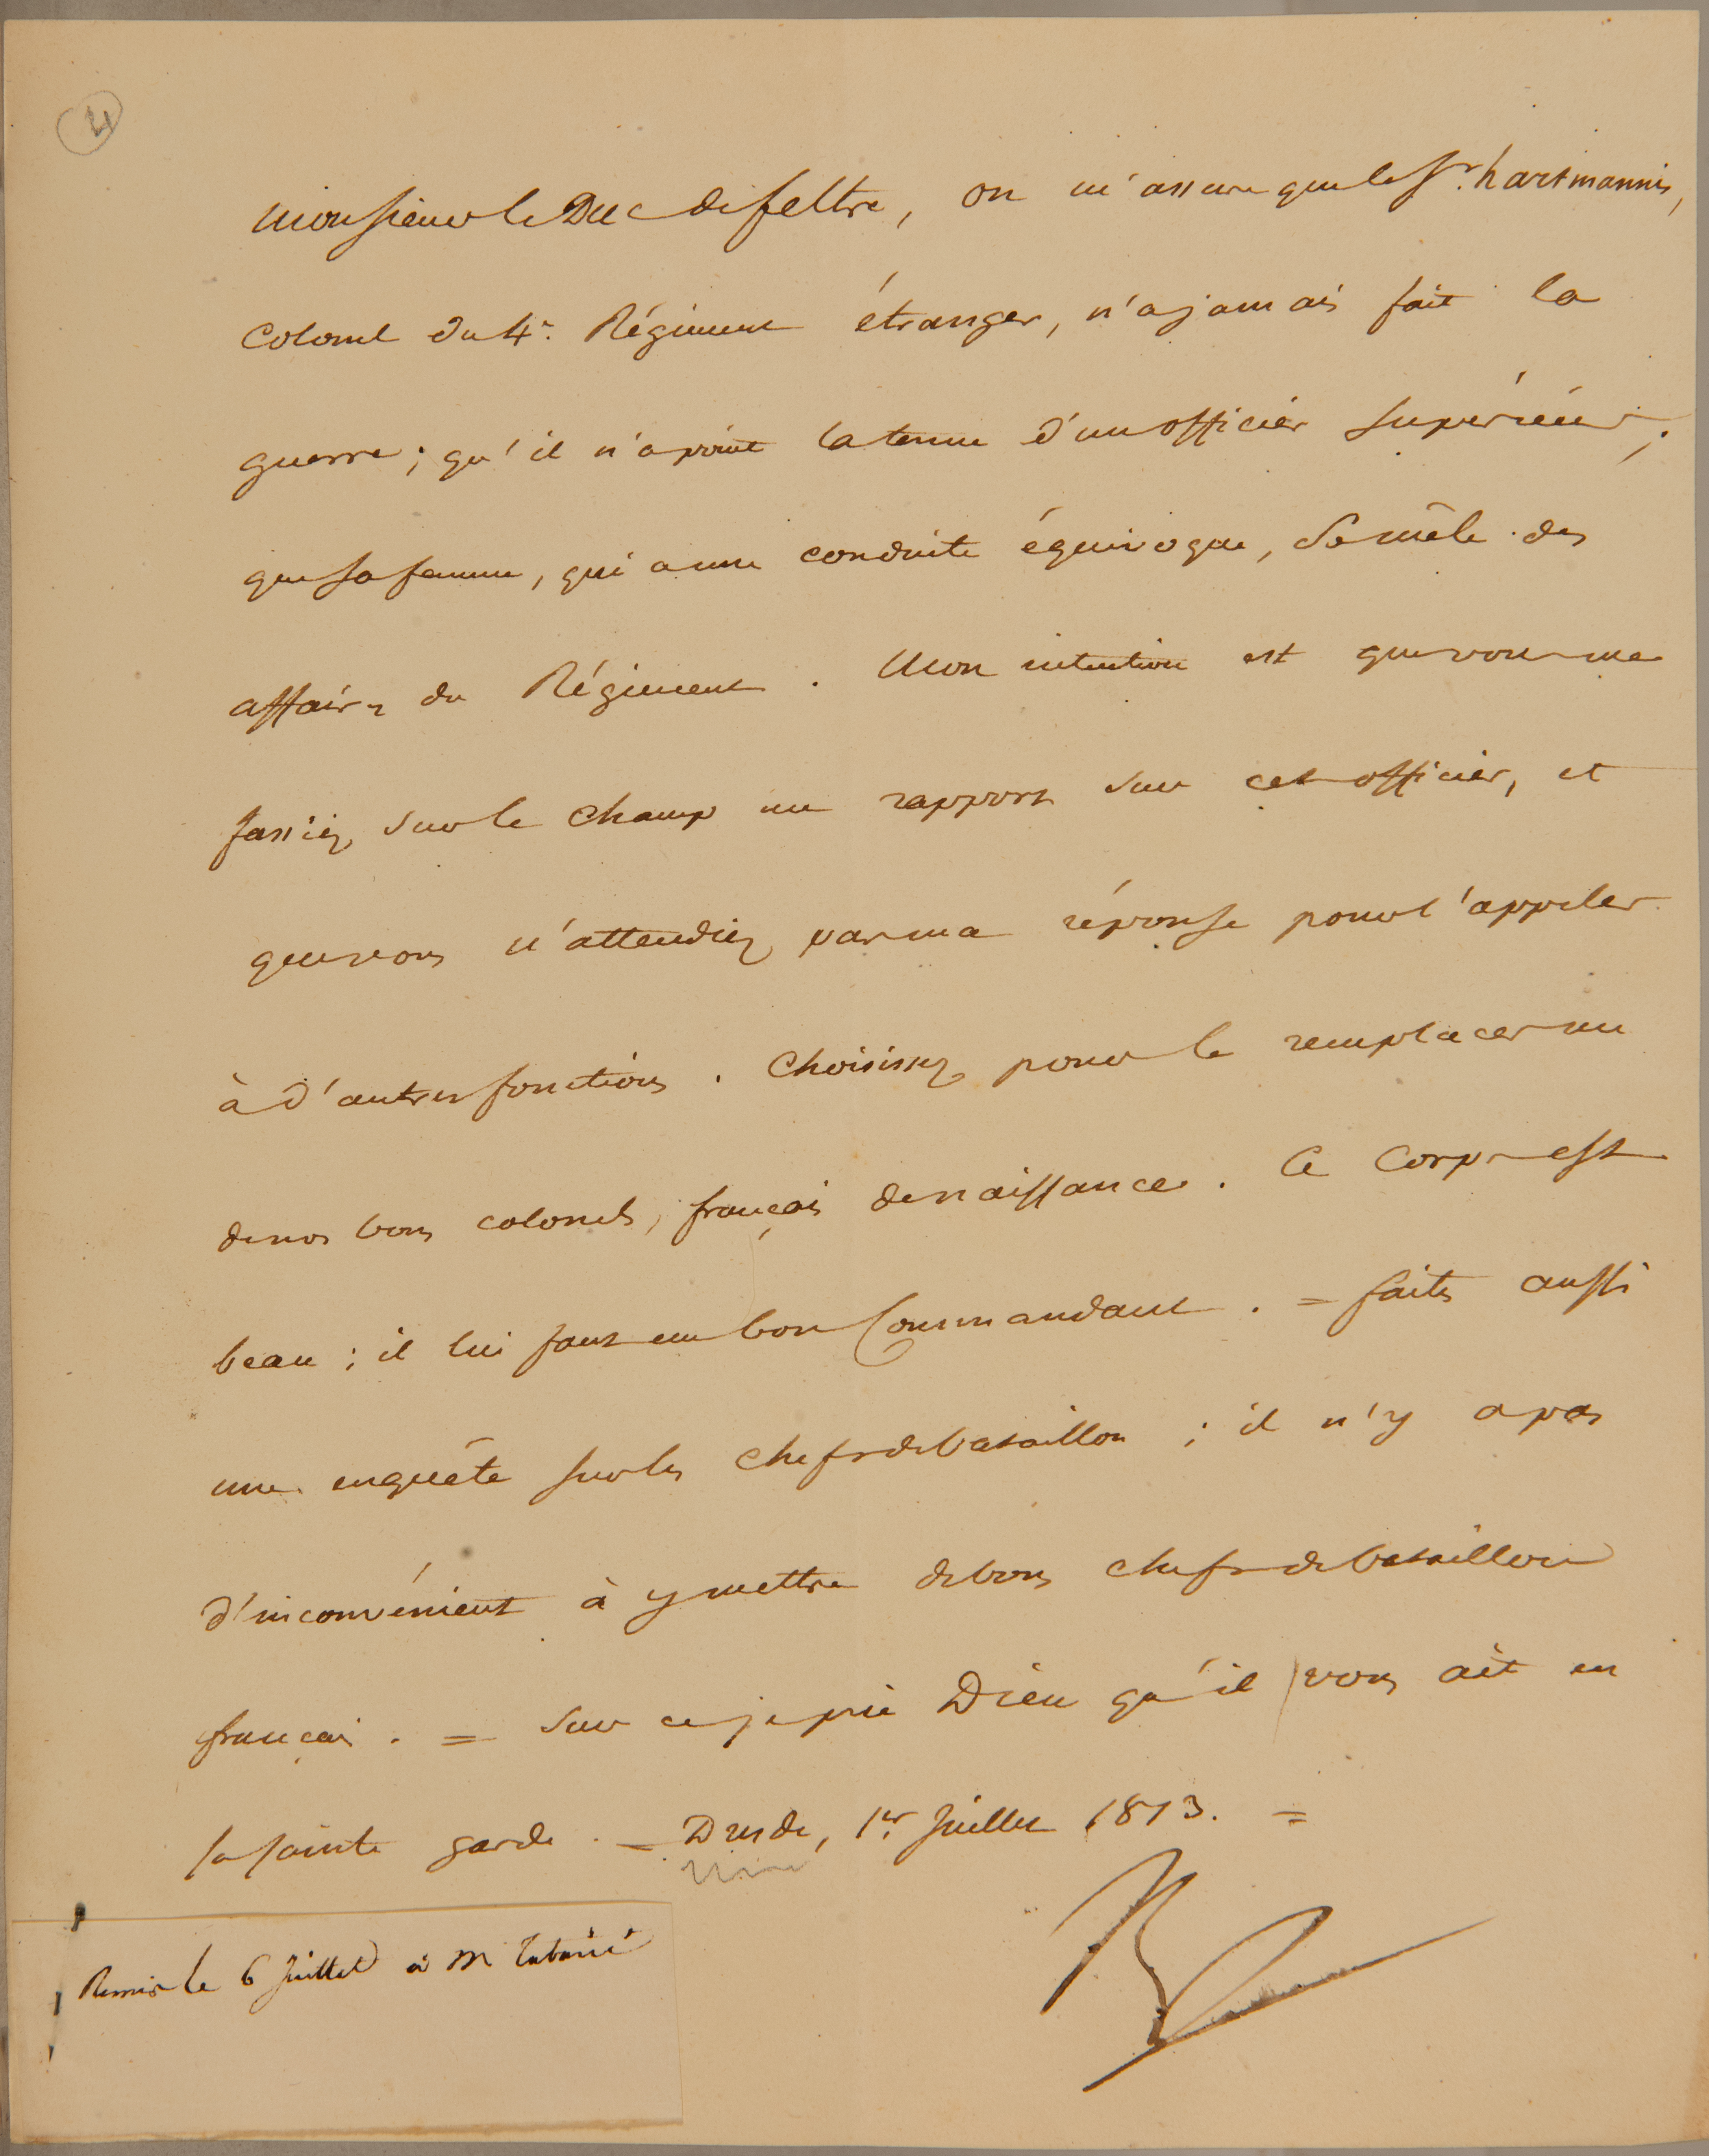 4
Monsieur le Duc de feltre, on m'assure que le Sr. hartmannis,
Colonel du 4e. Régiment étranger, n'a jamais fait la
guerre; qu'il n'a point la tenue d'un officier supérieur;
que sa femme, qui a une conduite équivoque, se mêle des
affaires du Régiment. Mon intention est que vous me
fassiez sur le champ un rapport sur cet officier, et
que vous n'attendiez pas ma réponse pour l'appeler
à d'autres fonctions. Choisissez pour le remplacer un
de nos bons colonels, français de naissance. Ce Corps est
beau; il lui faut un bon Commandant. = faites aussi
une enquête sur les chefs de bataillon; il n'y a pas
d'inconvénient à y mettre de bons chefs de bataillon
français. = Sur ce je prie Dieu qu'il vous ait en
sa sainte garde. = Dresde, 1er. Juillet 1813. =
Remis le 6 Juillet à M Tabarié